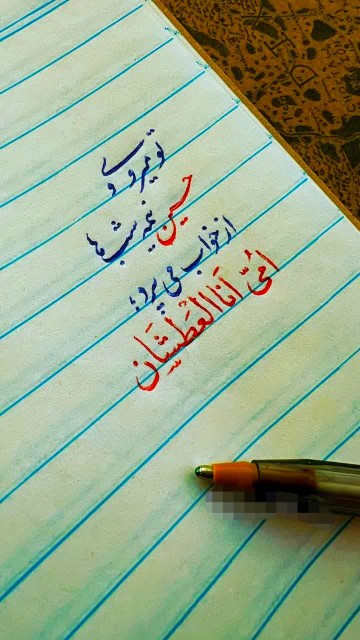 تو میروی و
حسین نیمه شب‌ها
از خواب می پرد؛
اُمّی اَنَا الْعَطْشَان